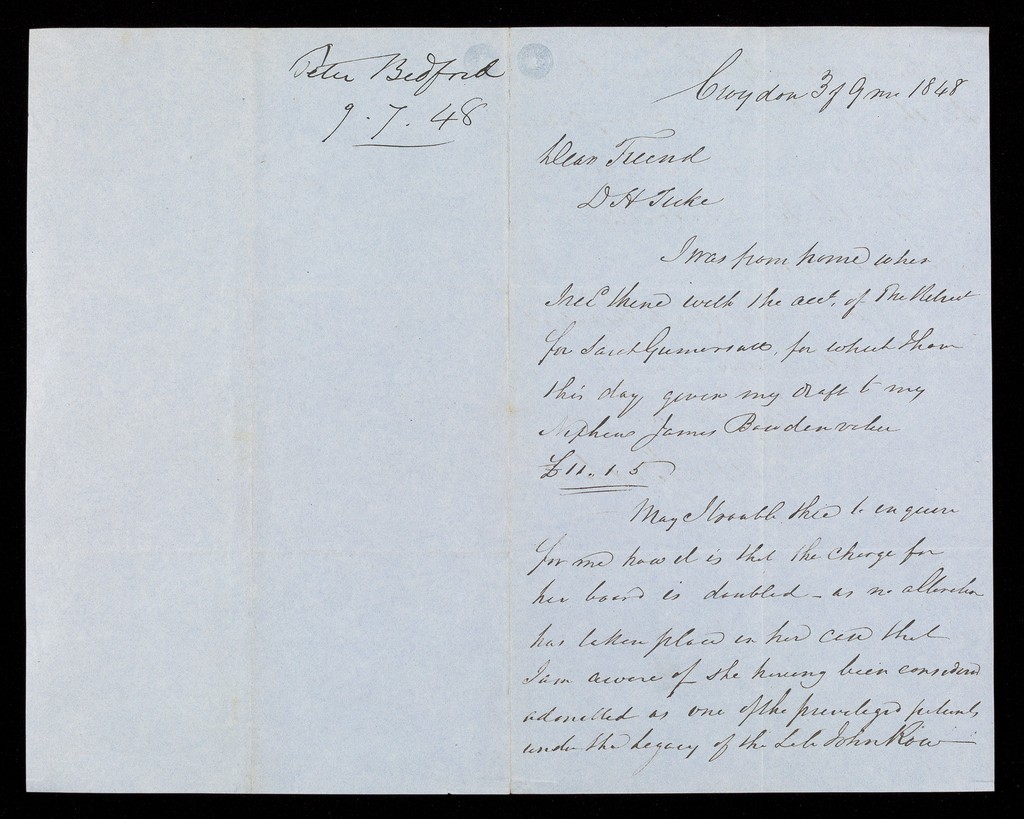 Peter Bedford
9. 7. 48
Croydon 3 of 9 mo 1848
Dear Friend
D H Tuke
I was from home when
I recd thine with the acct. of The Retreat
for Sarah Gumersall, for which I have
this day given my draft to my
Nephew James Bowden value
£11.. 1. 5
May I trouble thee to enquire
for me how it is that the charge for
her board is doubled - as no alteration
has taken place in her case that
I am aware of she having been considered
admitted as one of the priviledged patients
under the Legacy of the late John Row